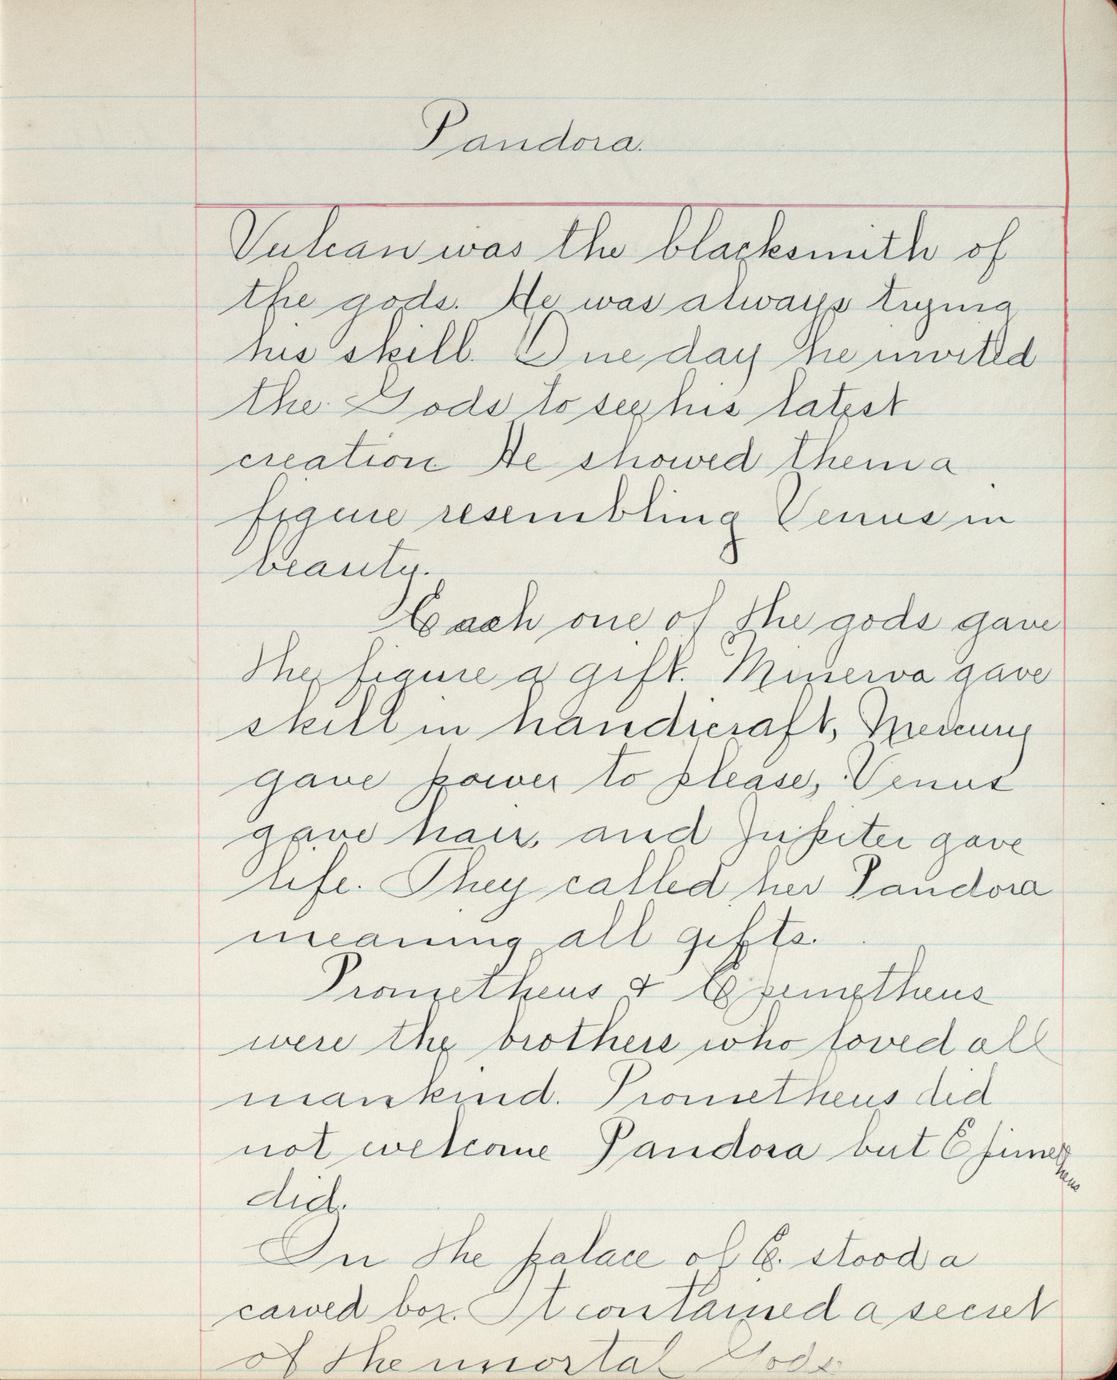 Pandora.
Vulcan was the blacksmith of
the gods. He was always trying
his skill. One day he invited
the Gods to see his latest
creation He showed them a
figure resembling Venus in
beauty.
Each one of the gods gave
the figure a gift. Minerva gave
skill in handicraft, Mercury
gave power to please, Venus
gave hair, and Jupiter gave
life. They called her Pandora
meaning all gifts.
Prometheus & Epimetheus
were the brothers who loved all
mankind. Prometheus did
not welcome Pandora but Epimetheus
did.
In the palace of E. stood a
carved box. It contained a secret
of the immortal Gods